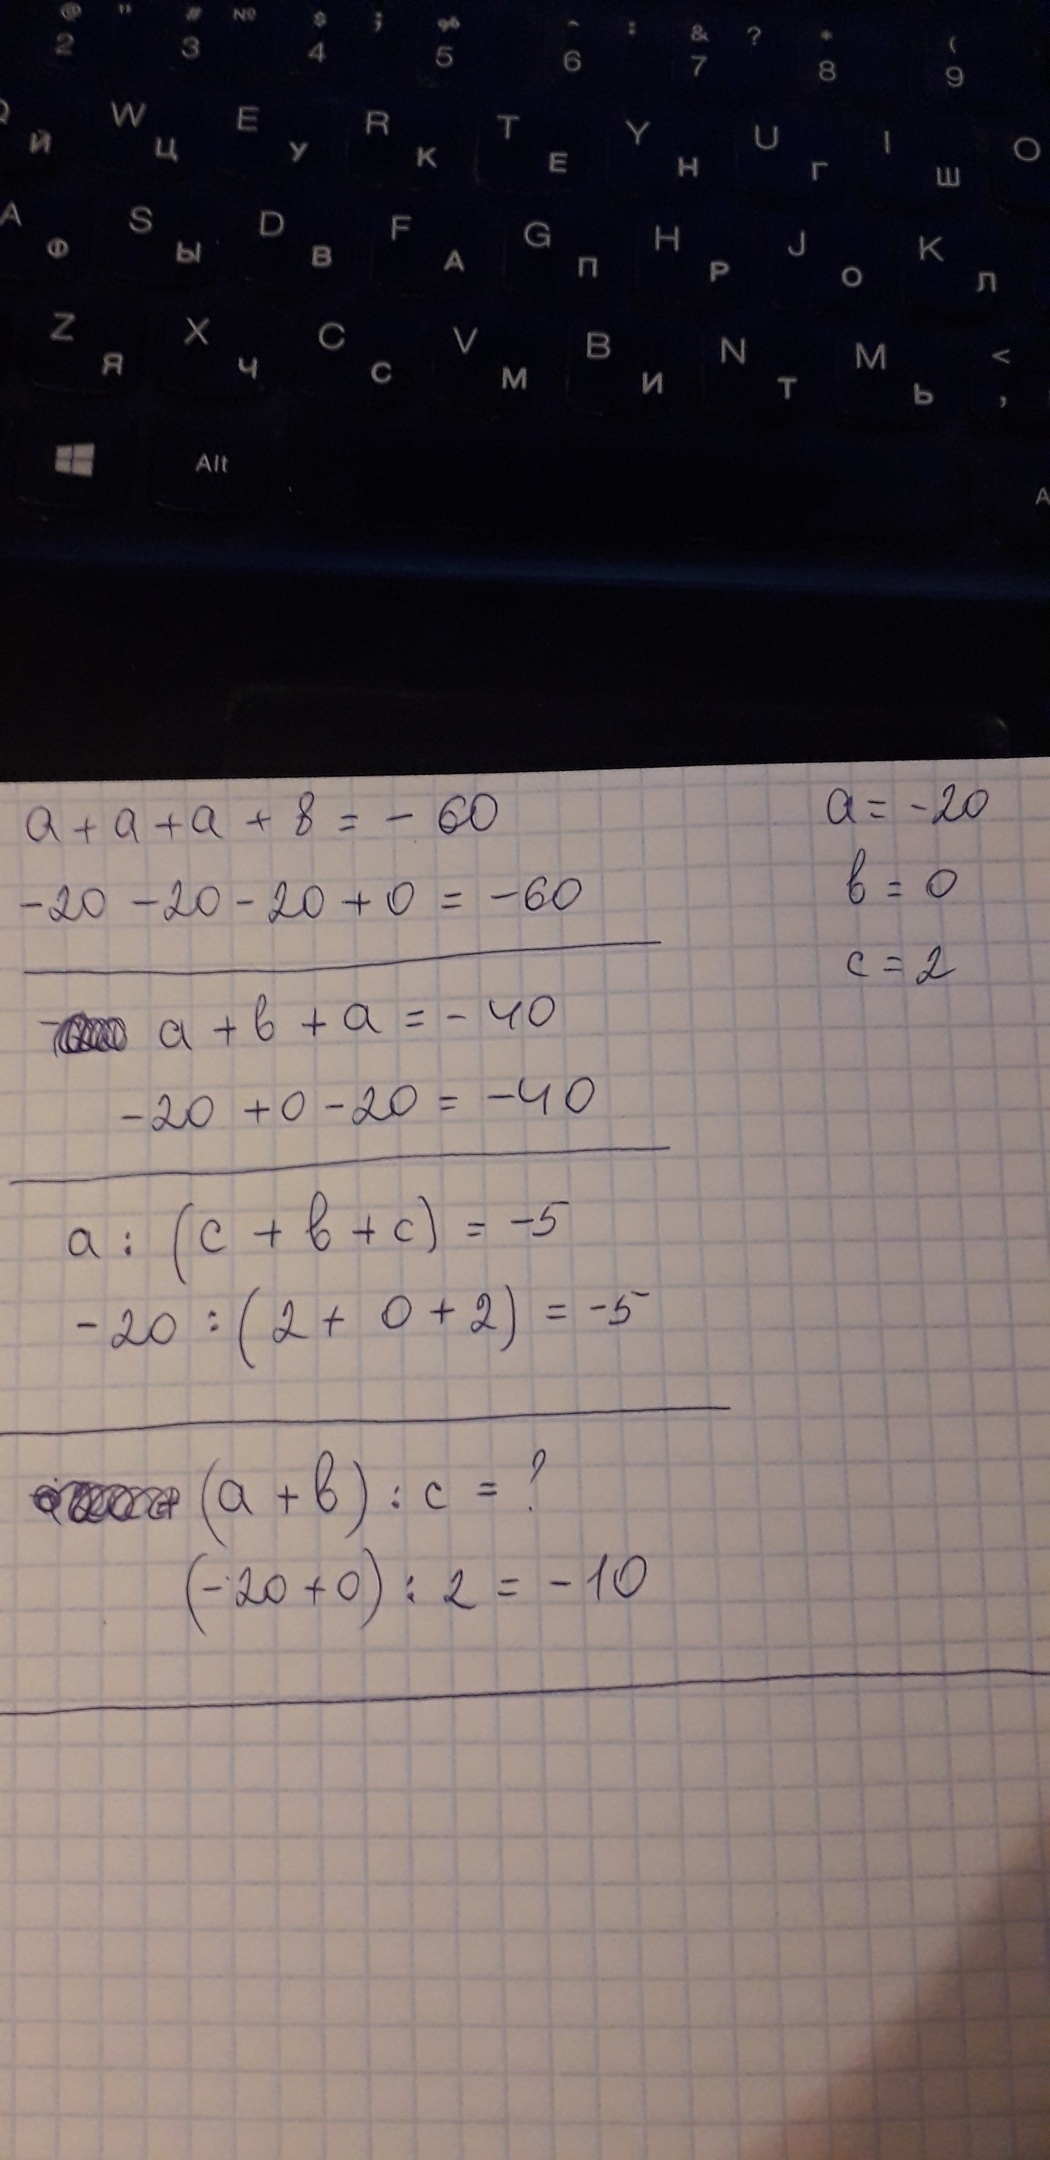 @ " # № $ ; % ^ : & ? * (
2 3 4 5 6 7 8 9
W E R T Y U I O
Й Ц У К Е Н Г Ш
A S D F G H J K
Ф Ы В А П Р О Л
Z X C V B N M <
Я Ч С М И Т Ь ,
Alt A
a + a + a + в = - 60
a = -20
-20 -20 - 20 + 0 = -60
в = 0
c = 2
a + в + a = - 40
-20 + 0 - 20 = -40
a : (c + в + c) = -5
-20 : (2 + 0 + 2) = -5
(a + в) : c = ?
(-20 + 0) : 2 = -10